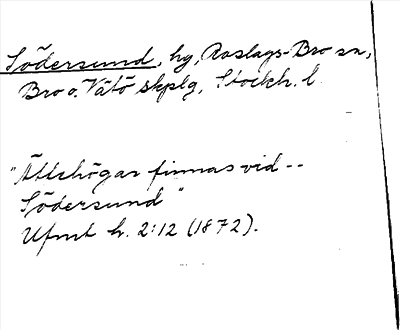 Södersund, hg, Roslags-Bro sn,
Bro o. Vätö skplg, Stockh. l.
"Ättehögar finnas vid --
Södersund"
Ufmt h. 2:12 (1872).